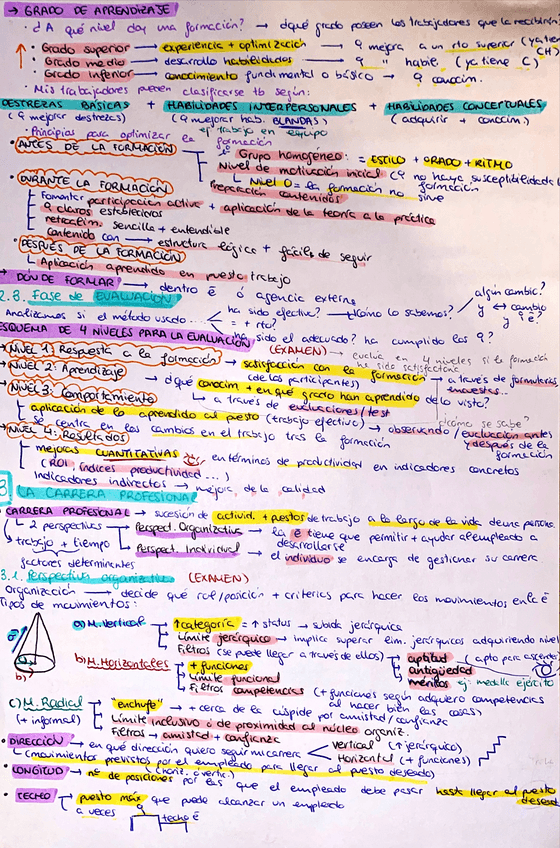 → GRADO DE APRENDIZAJE
¿A qué nivel doy una formación? → ¿qué grado poseen los trabajadores que la recibirán?
· Grado superior → experiencia + optimización → q mejora a un rto superior (ya tiene CH)
· Grado medio → desarrollo habilidades → q " habil. (ya tiene C)
· Grado inferior → conocimiento fundamental o básico → q conocim.
· Mis trabajadores pueden clasificarse tb según:
DESTREZAS BÁSICAS + HABILIDADES INTERPERSONALES + HABILIDADES CONCEPTUALES
(q mejorar destrezas) (q mejorar hab. BLANDAS) (adquirir + conocim.)
ej trabajo en equipo
Principios para optimizar la formación
· ANTES DE LA FORMACIÓN
Grupo homogéneo: = ESTILO + GRADO + RITMO
Nivel de motivación inicial (q no haya susceptibilidad
Nivel 0 = la formación no sirve
Preparación contenidos
· DURANTE LA FORMACIÓN
Fomentar participación activa + aplicación de la teoría a la práctica
q claros establecidos
retroalim. sencilla + entendible
contenido con → estructura lógica + fáciles de seguir
· DESPUÉS DE LA FORMACIÓN
Aplicación aprendido en puesto trabajo
→ DÓNDE FORMAR → dentro ē o agencia externa
2.8. Fase de EVALUACIÓN
Analizamos si el método usado... ha sido efectivo? → ¿Cómo lo sabemos? algún cambio?
= + rto? y ↔ cambio y ē?
ha sido el adecuado? ha cumplido los q?
ESQUEMA DE 4 NIVELES PARA LA EVALUACIÓN (EXAMEN) → evalúa en 4 niveles si la formación ha sido satisfactoria
→ NIVEL 1: Respuesta a la formación → satisfacción con la formación → a través de formularios, encuestas...
(de los participantes)
→ NIVEL 2: Aprendizaje → ¿qué conocim + en qué grado han aprendido de lo visto?
→ a través de evaluaciones/test
→ NIVEL 3: Comportamiento
aplicación de lo aprendido al puesto (trabajo efectivo) ¿cómo se sabe?
se centra en los cambios en el trabajo tras la formación → observando / evaluación antes y después de la formación
→ NIVEL 4: Resultados
mejoras CUANTITATIVAS en términos de productividad en indicadores concretos
(ROI, índices productividad...)
Indicadores indirectos → mejora de la calidad
3. LA CARRERA PROFESIONAL
CARRERA PROFESIONAL → sucesión de activid. + puestos de trabajo a lo largo de la vida de una persona
2 perspectivas → Perspect. Organizativa → la ē tiene que permitir + ayudar al empleado a desarrollarse
trabajo + tiempo → Perspect. Individual → el individuo se encarga de gestionar su carrera
factores determinantes
3.1. Perspectiva organizativa (EXAMEN)
Organización → decide qué rol/posición + criterios para hacer los movimientos en la ē
Tipos de movimientos:
a) M. Vertical ↑ categoría = ↑ status → subida jerárquica
Límite jerárquico → implica superar lim. jerárquicos adquiriendo nivel
Filtros (se puede llegar a través de ellos) aptitud (apto para ascender)
antigüedad
méritos ej: medalla ejército
b) M. Horizontales + funciones
Límite funcional
Filtros competencias (+ funciones según adquiero competencias al hacer bien las cosas)
c) M. Radial "enchufe" → + cerca de la cúspide por amistad/confianza
(+ informal) Límite inclusivo o de proximidad al núcleo organiz.
Filtros → amistad + confianza
· DIRECCIÓN → en qué dirección quiero seguir mi carrera vertical (↑ jerárquico)
Horizontal (+ funciones)
(movimientos previstos por el empleado para llegar al puesto deseado)
· LONGITUD → nº de posiciones (horiz. o vertic.) por las que el empleado debe pasar hasta llegar al puesto deseado
· TECHO puesto máx que puede alcanzar un empleado
a veces techo ē